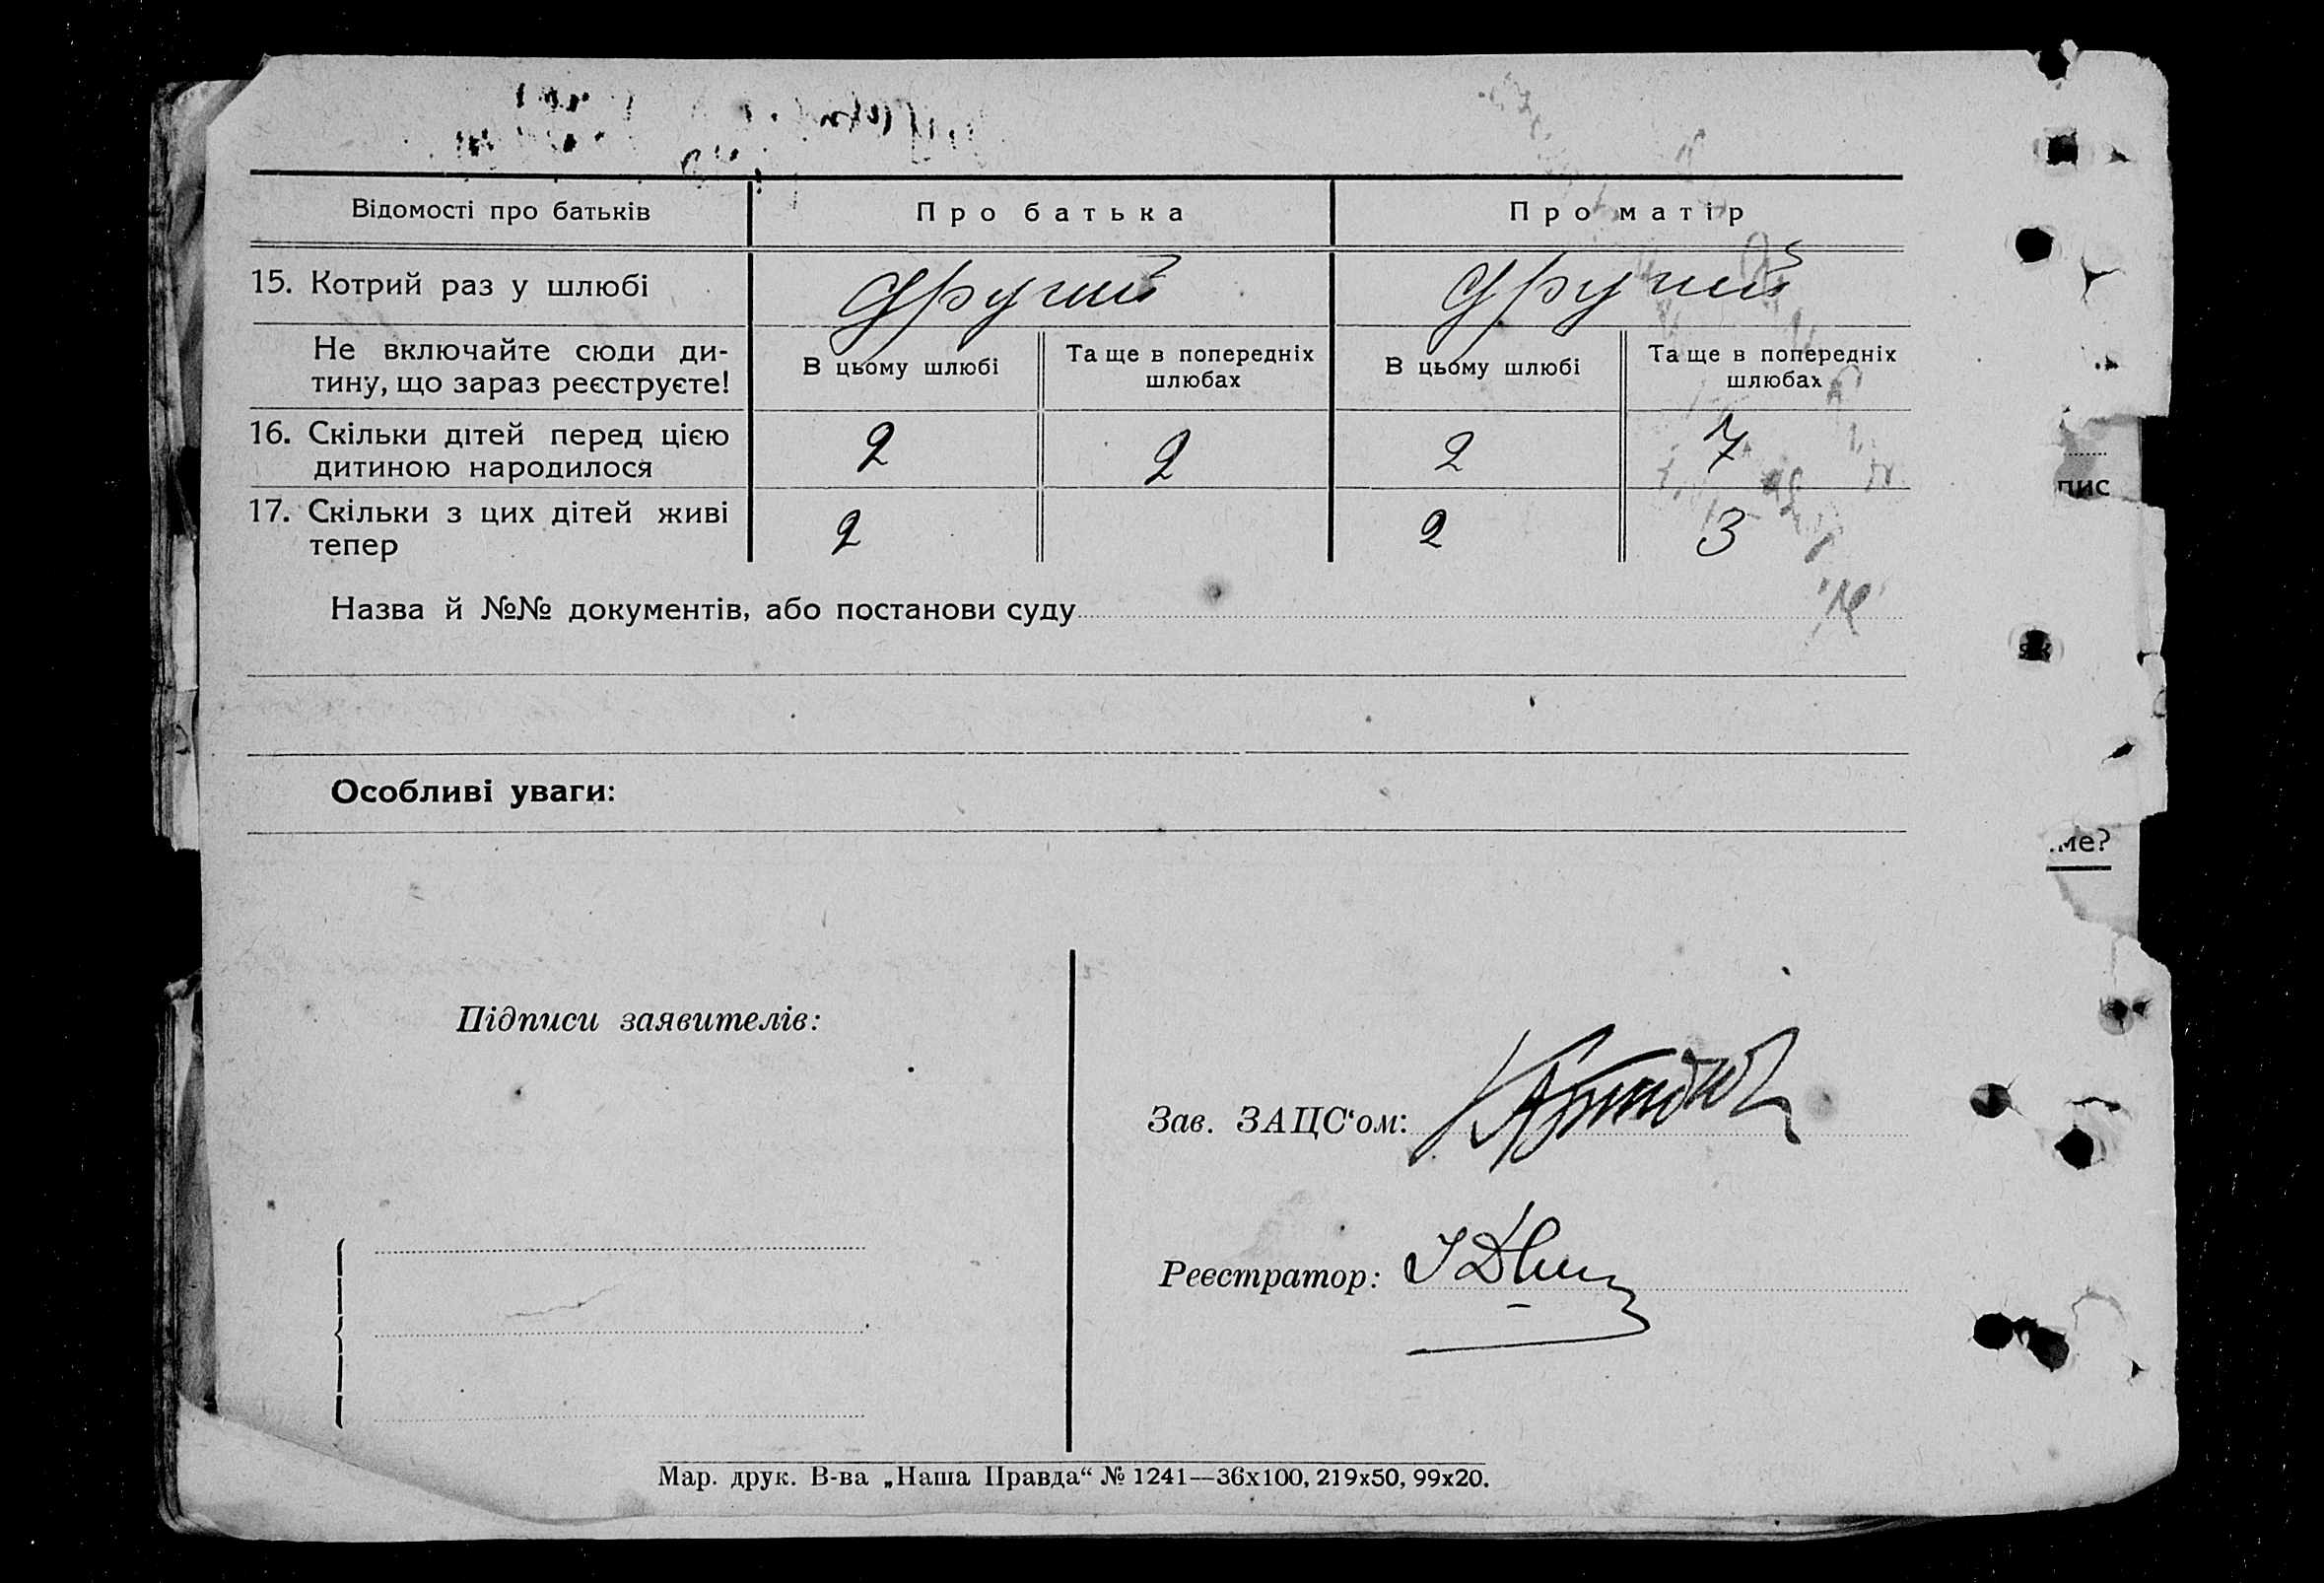 Відомості про батьків Про батька Про матір
15. Котрий раз у шлюбі другий другий
Не включайте сюди ди-
тину, що зараз реєструєте!
В цьому шлюбі Та ще в попередніх
шлюбах
В цьому шлюбі Та ще в попередніх
шлюбах
16. Скільки дітей перед цією
дитиною народилося
2 2 2 7
17. Скільки з цих дітей живі
тепер
2 2 3
пис
Назва й №№ документів, або постанови суду
Особливі уваги:
ме?
Підписи заявителів:
Зав. ЗАЦС‘ом:
Реєстратор:
Мар. друк. В-ва „Наша Правда“ № 1241—36х100, 219х50, 99х20.